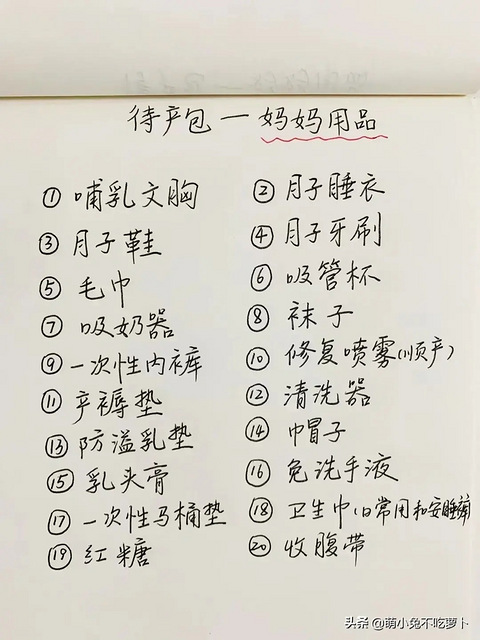 待产包一妈妈用品
① 哺乳文胸 ② 月子睡衣
③ 月子鞋 ④ 月子牙刷
⑤ 毛巾 ⑥ 吸管杯
⑦ 吸奶器 ⑧ 袜子
⑨ 一次性内裤 ⑩ 修复喷雾(顺产)
⑪ 产褥垫 ⑫ 清洗器
⑬ 防溢乳垫 ⑭ 帽子
⑮ 乳头膏 ⑯ 免洗手液
⑰ 一次性马桶垫 ⑱ 卫生巾(日常用和安睡裤
⑲ 红糖 ⑳ 收腹带
头条 @萌小兔不吃萝卜